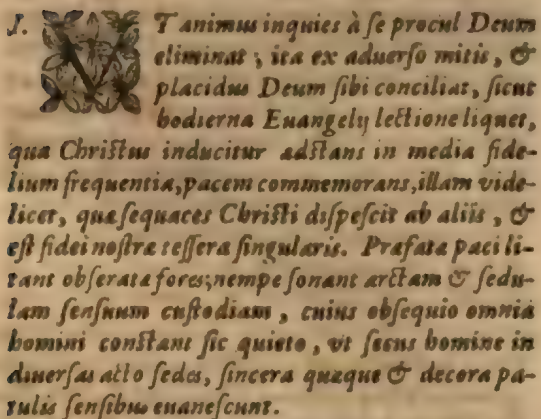 I. VT animus inquies à ſe procul Deum
eliminat; ita ex aduerſo mitis, &
placidus Deum ſibi conciliat, ſicut
hodierna Euangelij lectione liquet,
qua Chriſtus inducitur adſtans in media fide-
lium frequentia, pacem commemorans, illam vide-
licet, quæ ſequaces Chriſti diſpeſcit ab aliis, &
eſt fidei noſtræ teſſera ſingularis. Præfata paci li-
tant obſerata fores; nempe ſonant arctam & ſedu-
lam ſenſuum cuſtodiam, cuius obſequio omnia
homini conſtant ſic quieto, vt ſecus homine in
diuerſas acto ſedes, ſincera quæque & decora pa-
tulis ſenſibus euaneſcunt.